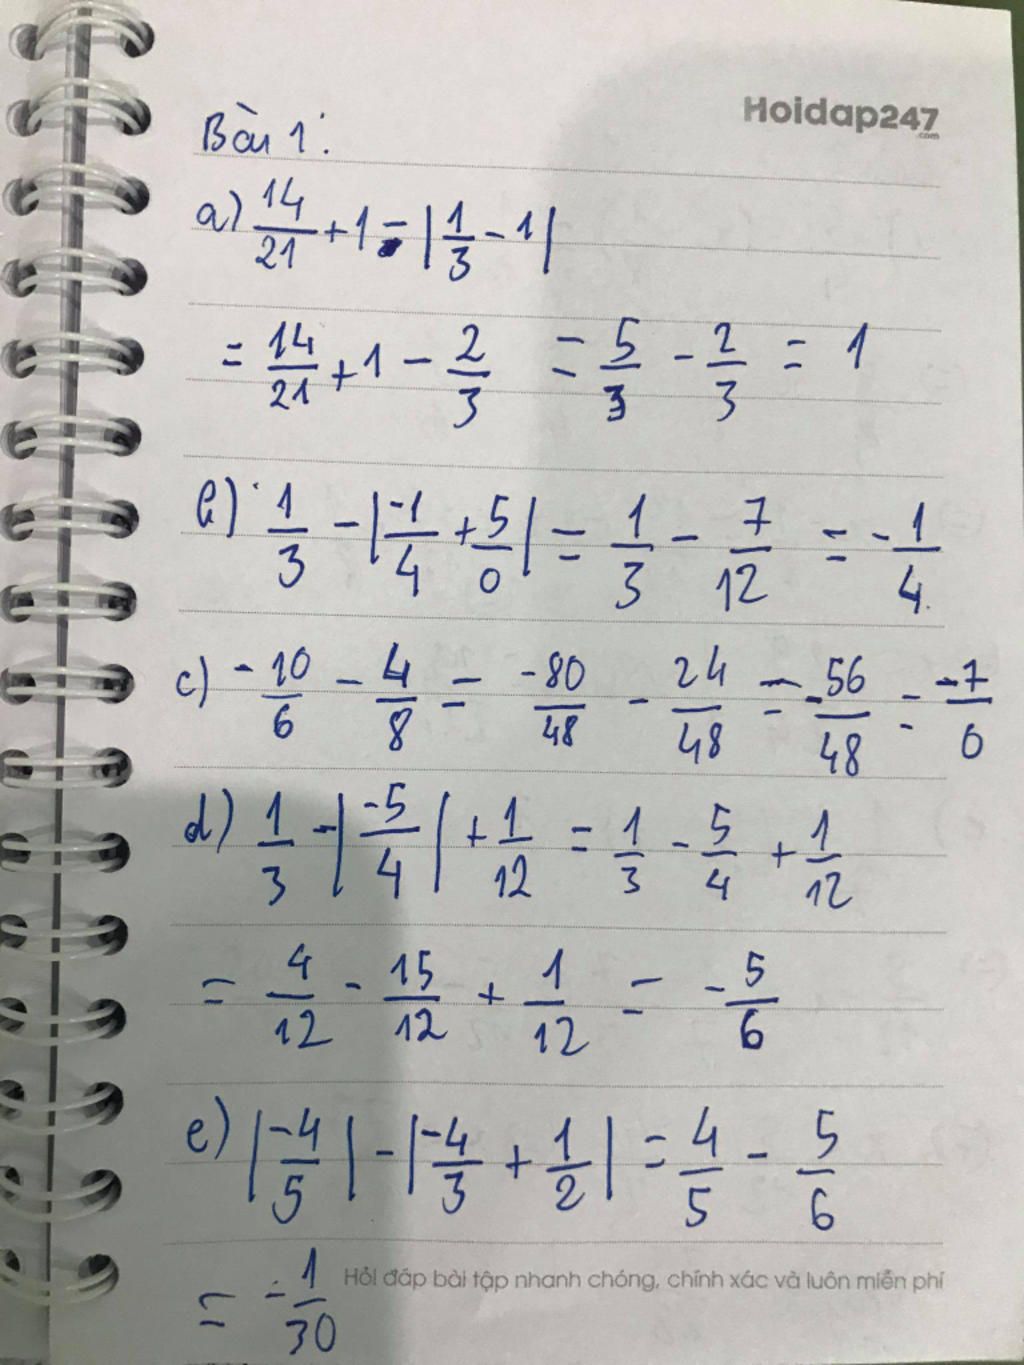 Hoidap247
.com
Bài 1:
a) 14/21 + 1 - |1/3 - 1|
= 14/21 + 1 - 2/3 = 5/3 - 2/3 = 1
b) 1/3 - |-1/4 + 5/0| = 1/3 - 7/12 = -1/4
c) -10/6 - 4/8 = -80/48 - 24/48 = -56/48 = -7/0
d) 1/3 - |-5/4| + 1/12 = 1/3 - 5/4 + 1/12
= 4/12 - 15/12 + 1/12 = -5/6
e) |-4/5| - |-4/3 + 1/2| = 4/5 - 5/6
= -1/30
Hỏi đáp bài tập nhanh chóng, chính xác và luôn miễn phí